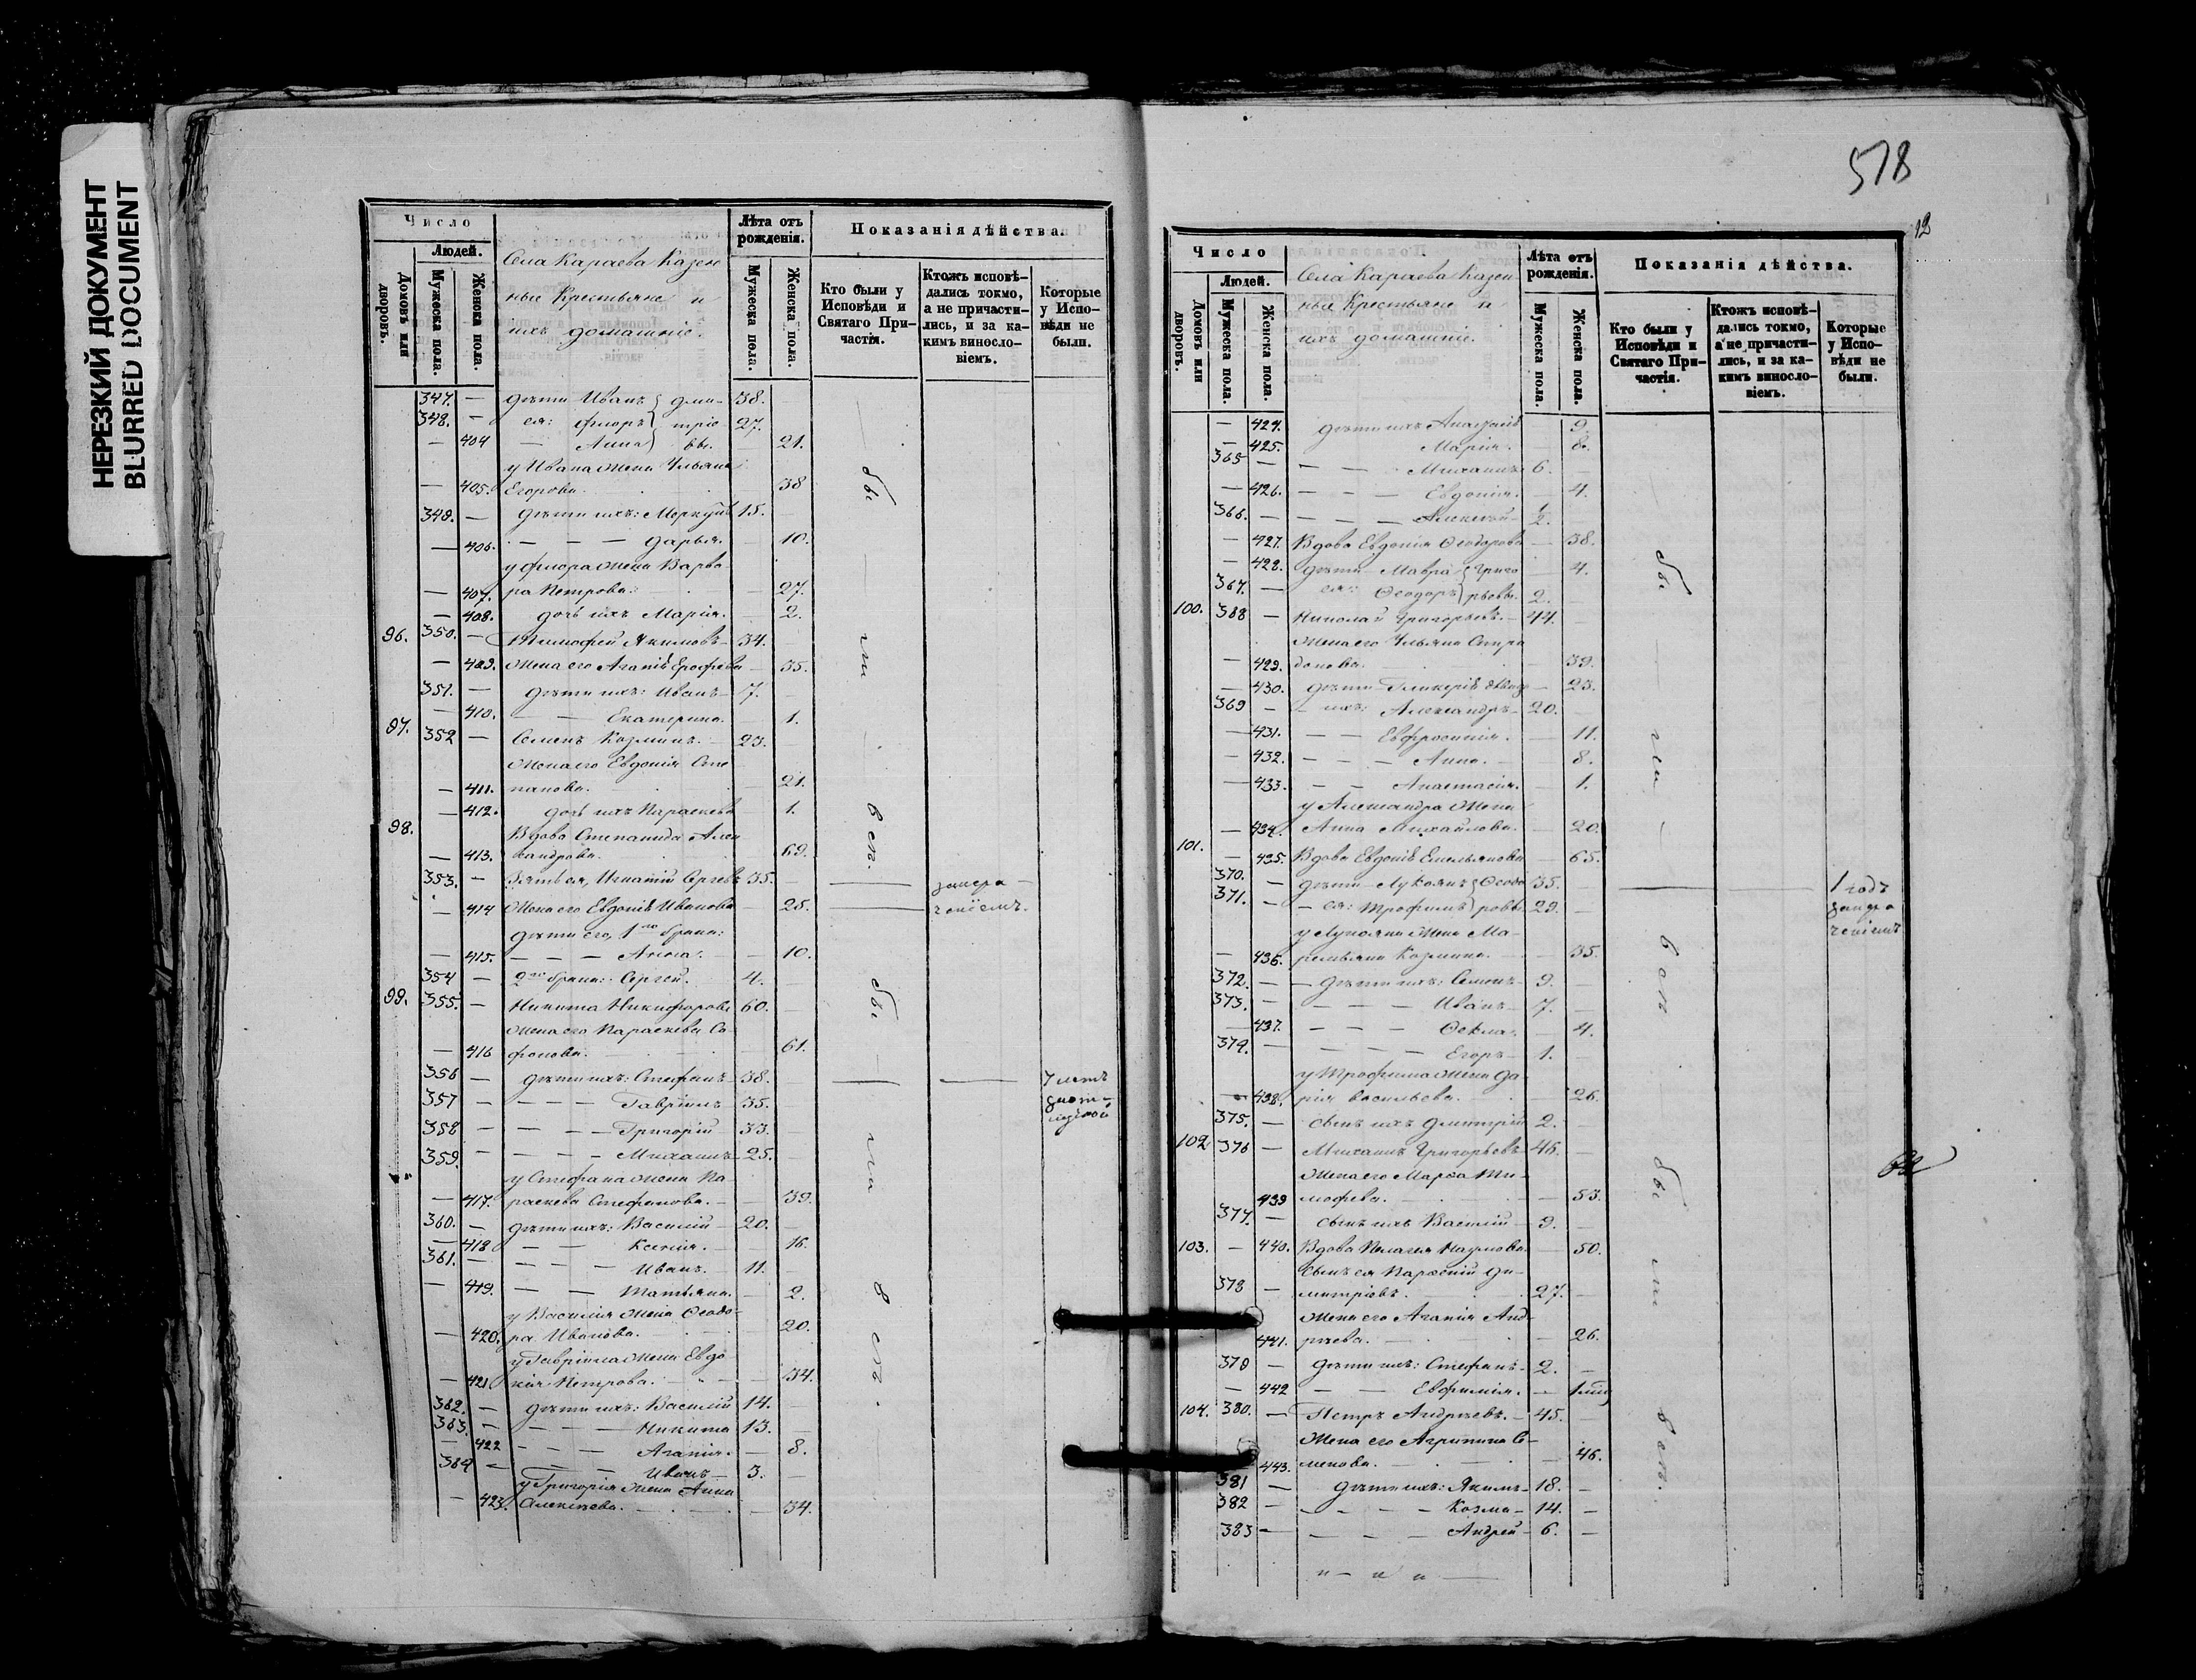 НЕРЕЗКИЙ ДОКУМЕНТ
BLURRED DOCUMENT
Число
Людей.
Домовъ или дворовъ.
Мужеска пола.
Женска пола.
Села Караева Казен
ные Крестьяне и
ихъ домашніе.
Лѣта отъ рожденія.
Мужеска пола.
Женска пола.
Показанія дѣйства.
Кто были у Исповѣди и Святаго Причастія.
Ктожъ исповѣдались токмо, а не причастились, и за какимъ винословіемъ.
Которые у Исповѣди не были.
347. — дѣти Иванъ } Дми- 38.
348. — ея: Флоръ } тріе 27.
— 404 — Анна } вы. 21.
у Ивана жена Ульяна
— 405. Егорова. 38
348. — дѣти ихъ: Меркулъ 15.
— 406. — — — Дарья. 10.
у Флора жена Варва-
— 407. ра Петрова. 27.
— 408. дочь ихъ Марія. 2.
96. 350. — Тимофей Якимовъ 34.
— 409. Жена его Агапія Ерофеева 35.
351. — дѣти ихъ: Иванъ 7.
— 410. — — Екатерина. 1.
97. 352 — Семенъ Козминъ. 23.
Жена его Евдокія Сте
— 411. панова. 21.
— 412. дочь ихъ Параскева 1.
98. Вдова Степанида Алек
— 413. сандрова. 69.
353. — Зять ея, Игнатій Сергеевъ 35.
— 414 Жена его Евдокія Иванова 25.
дѣти его, 1го брака:
— 415. — — — Анна. 10.
354 — 2го брака: Сергей. 4.
99. 355. — Никита Никифоровъ 60.
Жена его Параскева Со-
— 416 фонова. 61.
356 — дѣти ихъ: Стефанъ 38. 7 лѣтъ
357 — — — Гавріилъ 35.
358 — — — Григорій 33.
359. — — — Михаилъ 25.
у Стефана жена Па
— 417. раскева Стефанова. 39.
360. — дѣти ихъ: Василій 20.
— 418 — — Ксенія. 16.
361. — — — Иванъ. 11.
— 419. — — Татьяна. 2.
у Василія жена Ѳеодо-
— 420. ра Иванова. 20.
у Гавріила жена Евдо
— 421. кія Петрова. 34.
362. — дѣти ихъ: Василій 14.
363. — — — Никита 13.
— 422 — — — Агапія. 8.
364 — — — Иванъ 3.
у Григорія жена Анна
— 423. Алексѣева. 34.
578
12
Число
Людей.
Домовъ или дворовъ.
Мужеска пола.
Женска пола.
Села Караева Казен
ные Крестьяне и
ихъ домашніе.
Лѣта отъ рожденія.
Мужеска пола.
Женска пола.
Показанія дѣйства.
Кто были у Исповѣди и Святаго Причастія.
Ктожъ исповѣдались токмо, а не причастились, и за какимъ винословіемъ.
Которые у Исповѣди не были.
— 424. дѣти ихъ 9.
— 425. Марія. 8.
365 — — — Михаилъ 6.
— 426. — — — Евдокія. 4.
366. — — — — Алексѣй 1/2.
— 427. Вдова Евдокія Ѳеодорова 38.
— 428. дѣти Мавра } Григо 4.
367. — ея: Ѳеодоръ } рьевы 2.
100. 368 — Николай Григорьевъ. 44.
Жена его Ульяна Спири
— 429. донова. 39.
— 430. дѣти Гликерія 23.
369 — ихъ: Александръ 20.
— 431. — — Евфросинія. 11.
— 432. — — — Анна. 8.
— 433. — — Анастасія. 1.
у Александра жена
— 434. Анна Михайлова. 20.
101. — 435. Вдова Евдокія Емельянова 65.
370. — дѣти Лукьянъ } Ѳеодо 35. 1 годъ
371. — — ея: Трофимъ } ровы 29.
у Лукьяна жена Ма-
— 436. ремьяна Козмина. 35.
372. — дѣти ихъ: Семенъ 9.
373. — — — Иванъ 7.
— 437. — — — Ѳекла. 4.
374. — — — Егоръ 1.
у Трофима жена Да
— 438. рія Васильева. 26.
375. — сынъ ихъ Дмитрій 2.
102 376 — Михаилъ Григорьевъ 46.
Жена его Марѳа Ти-
439 мофеева. 53.
377. — сынъ ихъ Василій 9.
103. — 440. Вдова Пелагея Наумова 50.
378 Сынъ ея Парѳеній Ди-
— митріевъ. 27.
Жена его Агапія Анд
441. рѣева. 26.
379 — дѣти ихъ: Стефанъ 2.
— 442 — — Евфимія.
104. 380. — Петръ Андрѣевъ. 45.
Жена его Агрипина Се-
443. менова. 46.
381 — дѣти ихъ: Якимъ 18.
382 — — — — Козма 14.
383 — — — — Андрей 6.